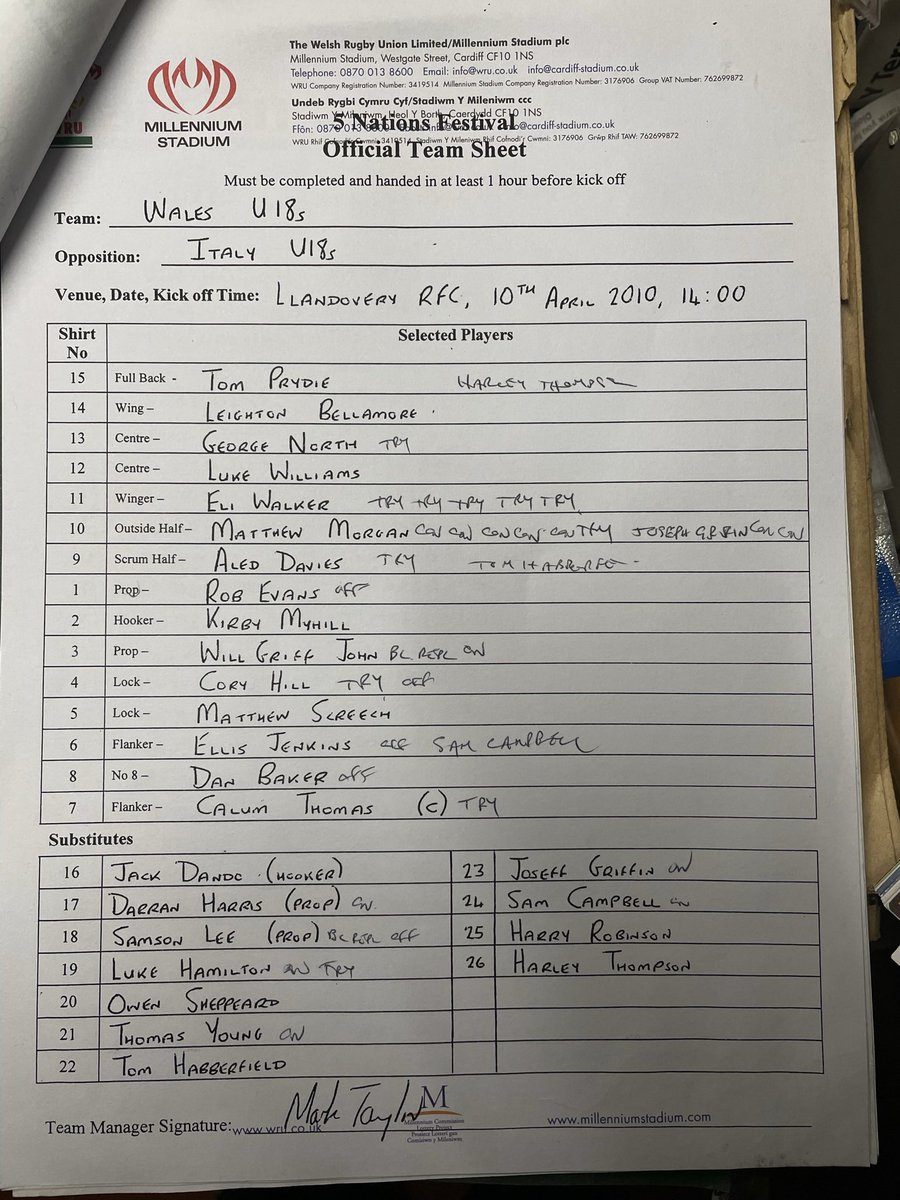 The Welsh Rugby Union Limited/Millennium Stadium plc
Millennium Stadium, Westgate Street, Cardiff CF10 1NS
Telephone: 0870 013 8600 Email: info@wru.co.uk info@cardiff-stadium.co.uk
WRU Company Registration Number: 3419514 Millennium Stadium Company Registration Number: 3176906 Group VAT Number: 762699872
WRU
MILLENNIUM
STADIUM
Undeb Rygbi Cymru Cyf/Stadiwm Y Mileniwm ccc
Stadiwm Y Mileniwm, Heol Y Borth, Caerdydd CF10 1NS
Ffôn: 0870 013 8600 info@cardiff-stadium.co.uk
WRU Rhif Cofrestr Cwmni: 3419514 Stadiwm Y Mileniwm Rhif Cwmni: 3176906 Grŵp Rhif TAW: 762699872
5 Nations Festival
Official Team Sheet
Must be completed and handed in at least 1 hour before kick off
Team: WALES U18s
Opposition: ITALY U18s
Venue, Date, Kick off Time: LLANDOVERY RFC, 10TH APRIL 2010, 14:00
Shirt No Selected Players
15 Full Back - TOM PRYDIE HARLEY THOMPSON
14 Wing – LEIGHTON BELLAMORE
13 Centre – GEORGE NORTH TRY
12 Centre – LUKE WILLIAMS
11 Winger – ELI WALKER TRY TRY TRY TRY TRY
10 Outside Half – MATTHEW MORGAN CON CON CON CON CON TRY JOSEPH GRIFFIN CON CON
9 Scrum Half – ALED DAVIES TRY TOM HABBERFE
1 Prop – ROB EVANS OFF
2 Hooker – KIRBY MYHILL
3 Prop – WILL GRIFF JOHN BL REPL ON
4 Lock – CORY HILL TRY OFF
5 Lock – MATTHEW SCREECH
6 Flanker – ELLIS JENKINS OFF SAM CAMPBELL
8 No 8 – DAN BAKER OFF
7 Flanker – CALUM THOMAS (C) TRY
Substitutes
16 JACK DANDO (HOOKER) 23 JOSEFF GRIFFIN ON
17 DARRAN HARRIS (PROP) ON 24 SAM CAMPBELL ON
18 SAMSON LEE (PROP) BL REPL OFF 25 HARRY ROBINSON
19 LUKE HAMILTON ON TRY 26 HARLEY THOMPSON
20 OWEN SHEPPEARD
21 THOMAS YOUNG ON
22 TOM HABBERFIELD
Team Manager Signature: Mark Taylor
www.wru.co.uk
Millennium Commission
Lottery Project
www.millenniumstadium.com